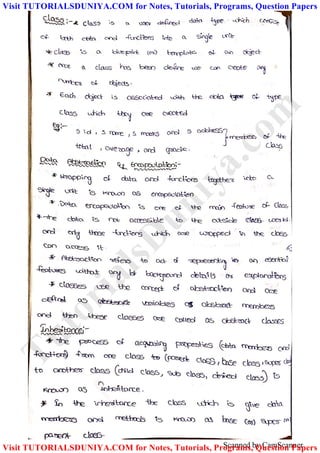 Visit TUTORIALSDUNIYA.COM for Notes, Tutorials, Programs, Question Papers
Class :- * Class is a user defined data type which consists
of both data and functions into a single unit
* class is a blueprint (or) template of an object
* once a class has been define we can create any
numbers of objects.
* Each object is associated with the data of type
class which they are created
Eg:- s id, s name, s marks and s address
total, average, and grade. members of the
class
Data Abstraction & Encapsulation:-
* wrapping of data and functions together into a
single unit is known as encapsulation
* Data encapsulation is one of the main feature of class
* the data is not accessible to the outside world
and only those functions which are wrapped in the class
can access it.
* Abstraction refers to act of representing an essential
features without any background details or explanations
* classes use the concept of abstraction and are
defined as variables abstract members
and then these classes are called as abstract classes
Inheritance:-
* the process of acquiring properties (data members and
functions) from one class to (parent class, base class, super
to another class (child class, sub class, derived class) is
known as inheritance.
* In the inheritance the class which is give data
members and methods is known as base (or) super
parent class.
TutorialsDuniya.com
Scanned by CamScanner
Visit TUTORIALSDUNIYA.COM for Notes, Tutorials, Programs, Question Papers